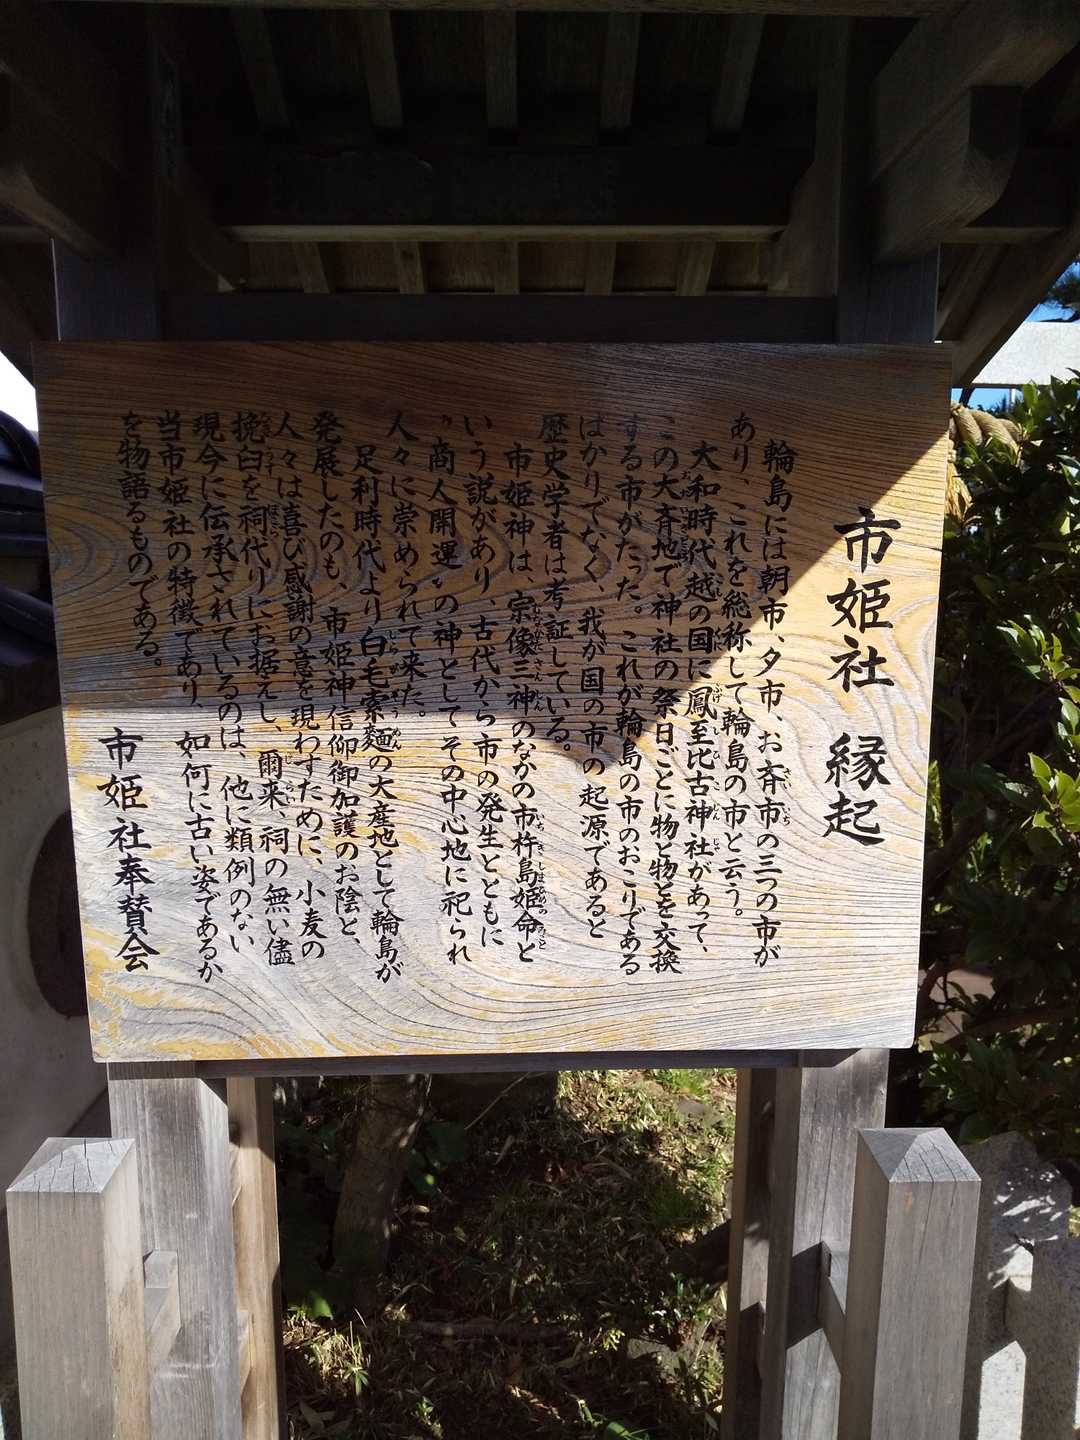 市姫社 縁起
輪島には朝市、夕市、お斉市の三つの市が
あり、これを総称して輪島の市と云う。
大和時代越の国に鳳至比古神社があって、
この大斉地で神社の祭日ごとに物と物とを交換
する市がたった。これが輪島の市のおこりである
ばかりでなく、我が国の市の起源であると
歴史学者は考証している。
市姫神は、宗像三神のなかの市杵島姫命と
いう説があり、古代から市の発生とともに
〃商人開運〃の神としてその中心地に祀られ
人々に崇められて来た。
足利時代より白毛索麺の大産地として輪島が
発展したのも、市姫神信仰御加護のお陰と、
人々は喜び感謝の意を現わすために、小麦の
挽臼を祠代りにお据えし、爾来、祠の無い儘
現今に伝承されているのは、他に類例のない
当市姫社の特徴であり、如何に古い姿であるか
を物語るものである。
市姫社奉賛会